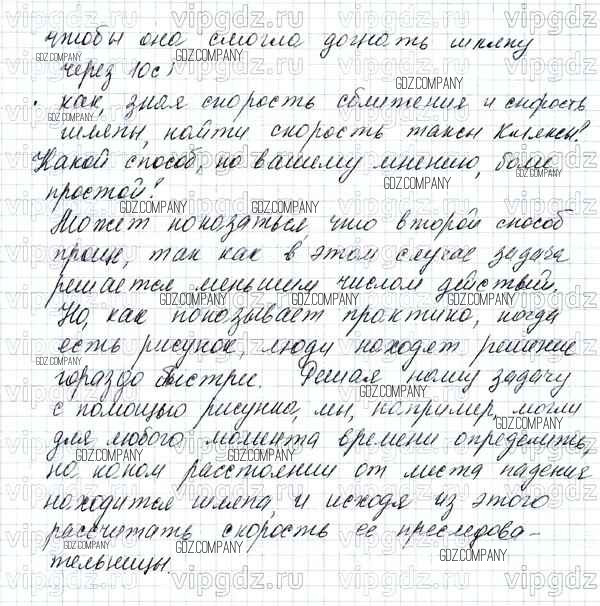 чтобы она смогла догнать шляпу
через 10с?
• как, зная скорость сближения и скорость
шляпы, найти скорость таксы Кляксы?
Какой способ, по вашему мнению, более
простой?
Может показаться, что второй способ
проще, так как в этом случае задача
решается меньшим числом действий.
Но, как показывает практика, когда
есть рисунок, люди находят решение
гораздо быстрее. Решая нашу задачу
с помощью рисунка, мы, например, могли
для любого момента времени определить,
на каком расстоянии от места падения
находится шляпа, и исходя из этого
рассчитать скорость её преследова-
тельницы.